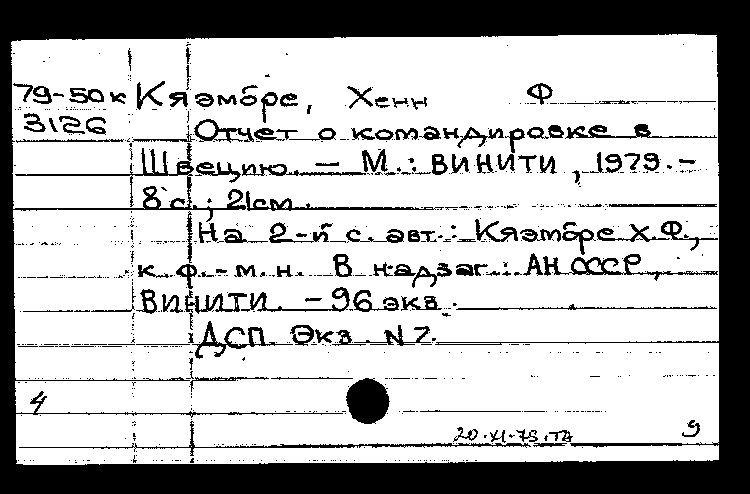 79-50к Кяэмбре, Хенн Ф
3126 Отчет о командировке в
Швецию. — М.: ВИНИТИ, 1979. —
8 с.; 21см.
На 2-й с. авт.: Кяэмбре Х.Ф.,
к.ф.-м.н. В надзаг.: АН СССР,
ВИНИТИ. — 96 экз.
ДСП. Экз. N 7.
4
9